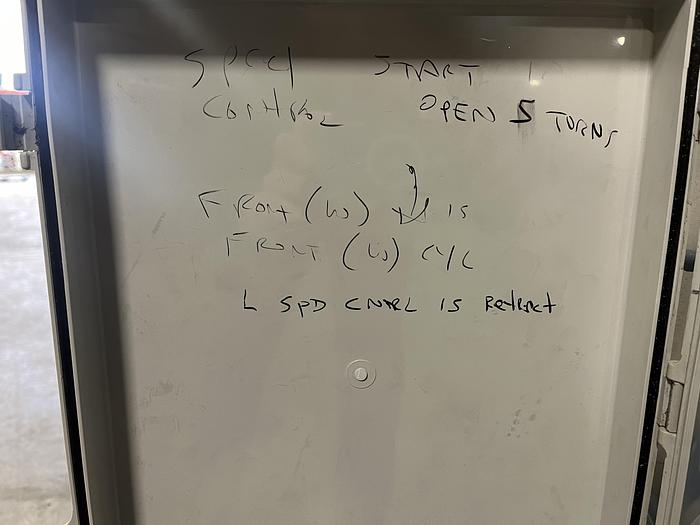 SPEED START
CONTROL OPEN 5 TURNS
FRONT (W) IS
FRONT (W) CYL
L SPD CNTRL IS Retract